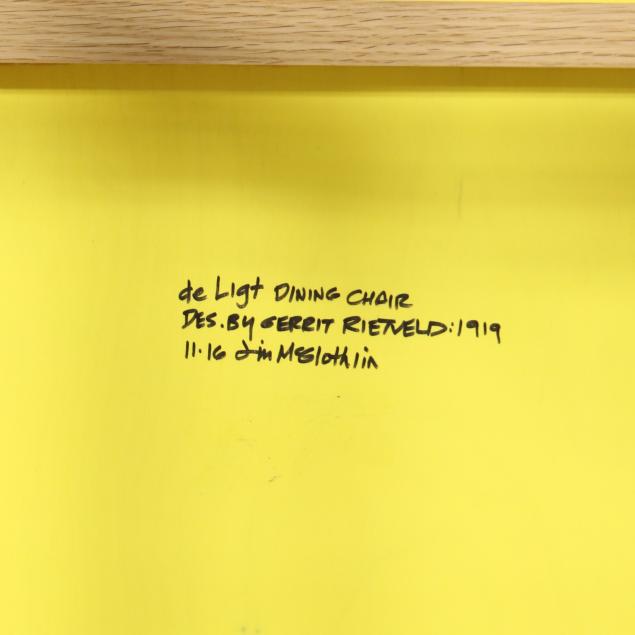 de Ligt DINING CHAIR
DES. BY GERRIT RIETVELD: 1919
11.16 Jim McGlothlin